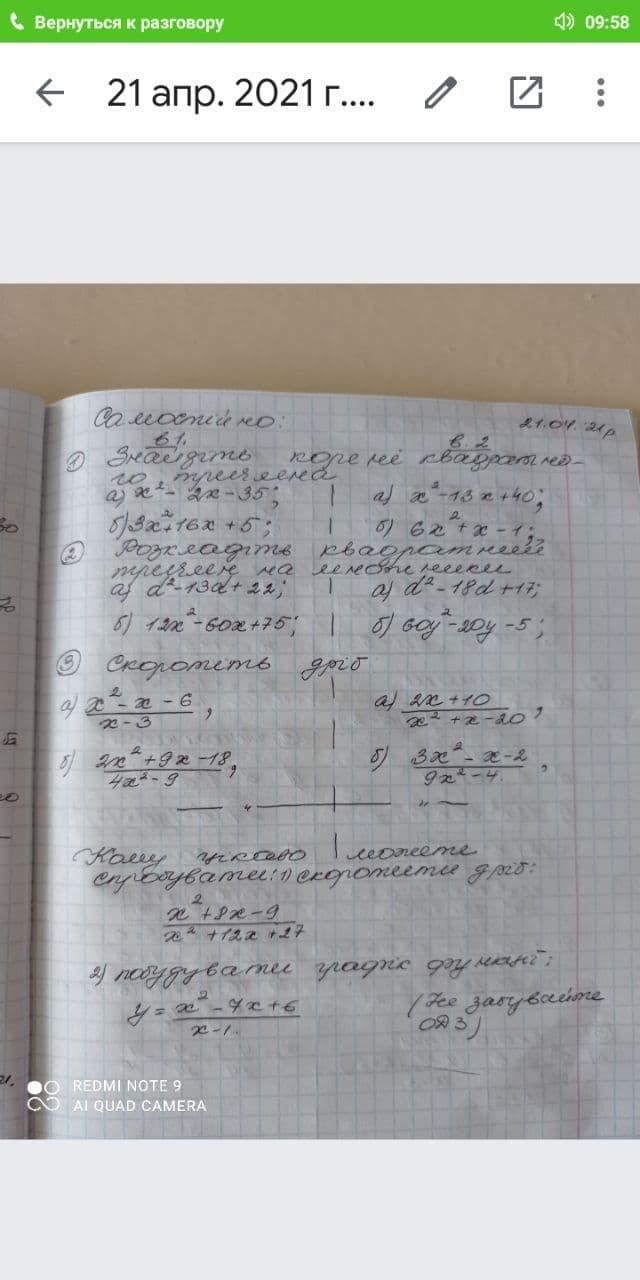 Вернуться к разговору 09:58
21 апр. 2021 г....
Самостійно: 21.04.21р
в 1. в. 2
① Знайдіть корені квадратно-
го тричлена
а) x² - 2x - 35; | а) x² - 13x + 40;
б) 3x² + 16x + 5; | б) 6x² + x - 1;
② Розкладіть квадратний
тричлен на множники
а) d² - 13d + 22; | а) d² - 18d + 17;
б) 12x² - 60x + 75; | б) 60y² - 20y - 5;
③ Скоротіть дріб
а) (x² - x - 6)/(x - 3), | а) (2x + 10)/(x² + x - 20),
б) (2x² + 9x - 18)/(4x² - 9), | б) (3x² - x - 2)/(9x² - 4),
Кому цікаво можете
спробувати: 1) скоротити дріб:
(x² + 8x - 9)/(x² + 12x + 27)
2) побудувати графік функції:
y = (x² - 7x + 6)/(x - 1) (Не забувайте
ОДЗ)
REDMI NOTE 9
AI QUAD CAMERA